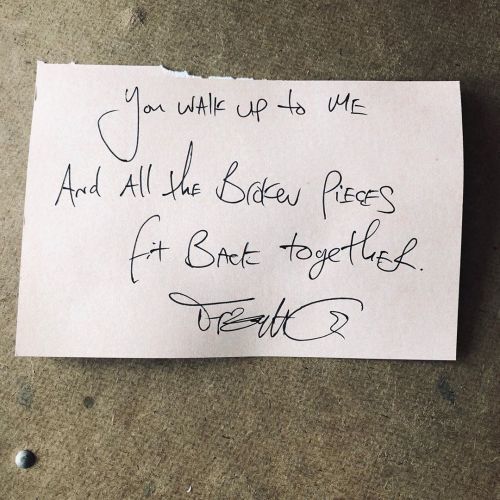 You WALK UP to ME
And All the Broken PiECES
fit BACK togethER.